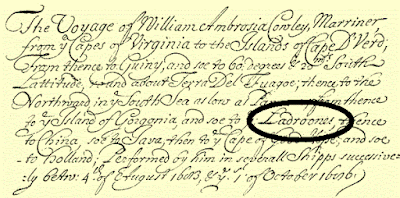 The Voyage of William Ambrosia Cowley, Marriner
from yᵉ Capes of Virginia to the Islands of Cape D'Verd;
From thence to Guiny, and soe to 60 degrees & South
Lattitude, and about Terra Del Fuagoe; thence to the
Northward in yᵉ South Sea as low as thence
to yᵉ Island of Gorgonia, and soe to Ladroones, thence
to China, soe to Java, then to yᵉ Cape of Good, and soe
to Holland; Performed by him in severall Shipps successive-
ly betw: 4th of August 1683, & yᵉ of October 1686